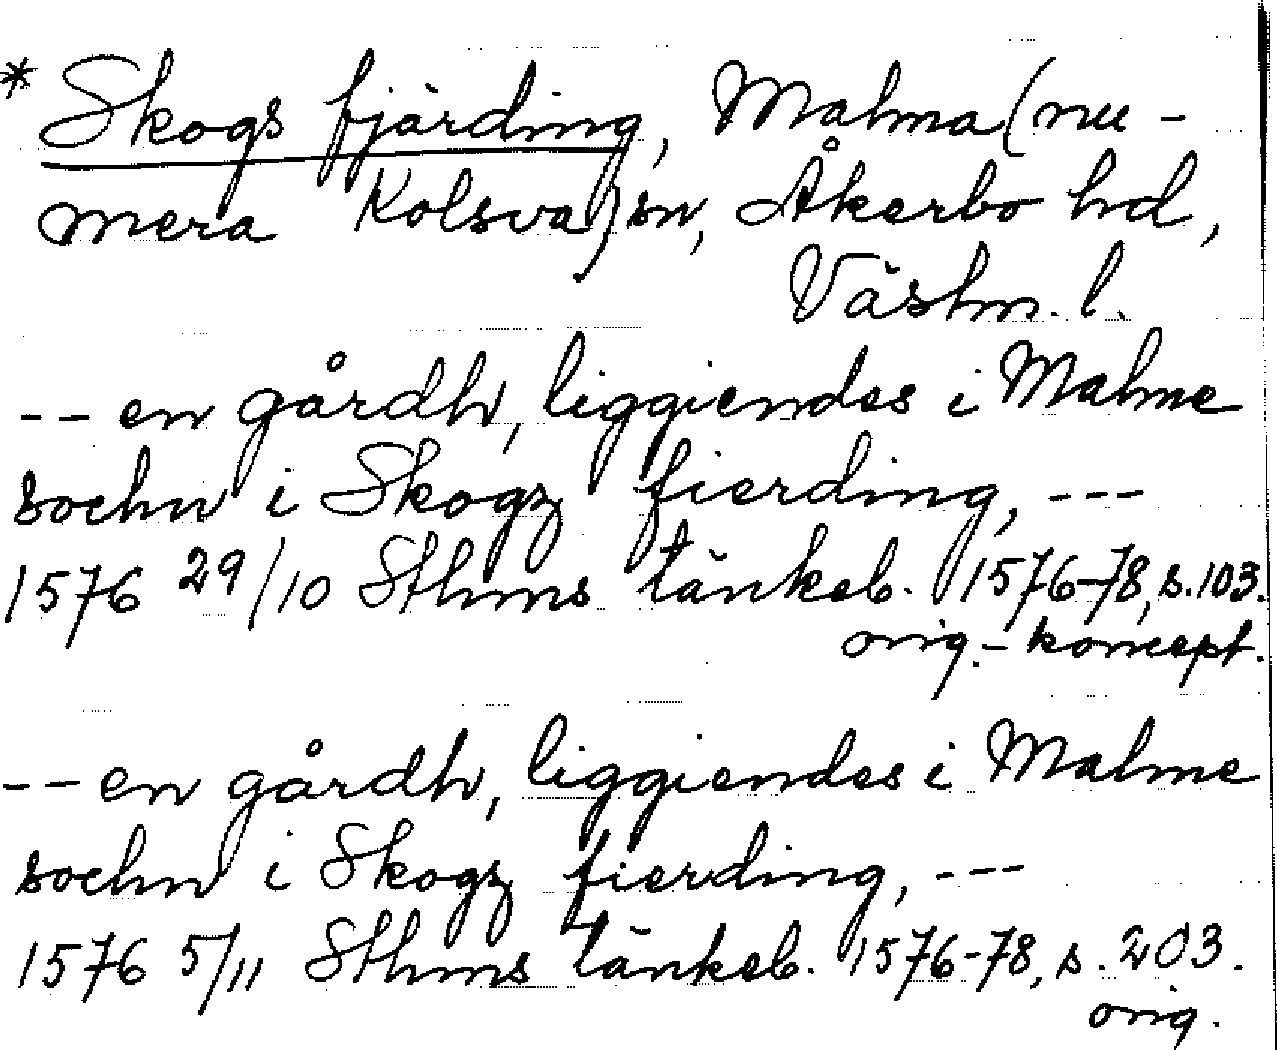 * Skogs fjärding, Malma (nu-
mera Kolsva) sn, Åkerbo hd,
Västm. l.
-- en gårdh, liggiendes i Malme
sochn i Skogz fierding, ---
1576 29/10 Sthms tänkeb. 1576-78, s. 103.
orig.-koncept.
-- en gårdh, liggiendes i Malme
sochn i Skogz fierding, ---
1576 5/11 Sthms tänkeb. 1576-78, s. 203.
orig.